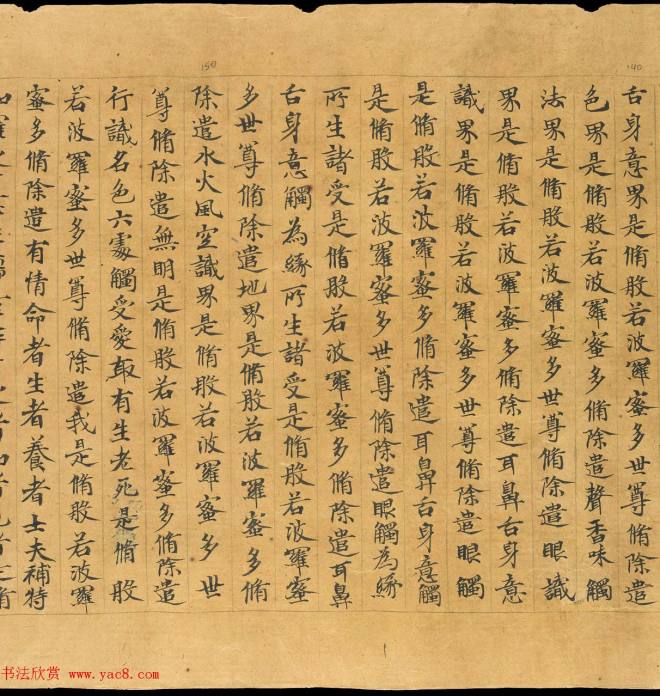 140
舌身意界是脩般若波羅蜜多世尊脩除遣
色界是脩般若波羅蜜多脩除遣聲香味觸
法界是脩般若波羅蜜多世尊脩除遣眼識
界是脩般若波羅蜜多脩除遣耳鼻舌身意
識界是脩般若波羅蜜多世尊脩除遣眼觸
是脩般若波羅蜜多脩除遣耳鼻舌身意觸
是脩般若波羅蜜多世尊脩除遣眼觸為緣
所生諸受是脩般若波羅蜜多脩除遣耳鼻
舌身意觸為緣所生諸受是脩般若波羅蜜
多世尊脩除遣地界是脩般若波羅蜜多脩
150
除遣水火風空識界是脩般若波羅蜜多世
尊脩除遣無明是脩般若波羅蜜多脩除遣
行識名色六處觸受愛取有生老死是脩般
若波羅蜜多世尊脩除遣我是脩般若波羅
蜜多脩除遣有情命者生者養者士夫補特
书法欣赏 www.yac8.com